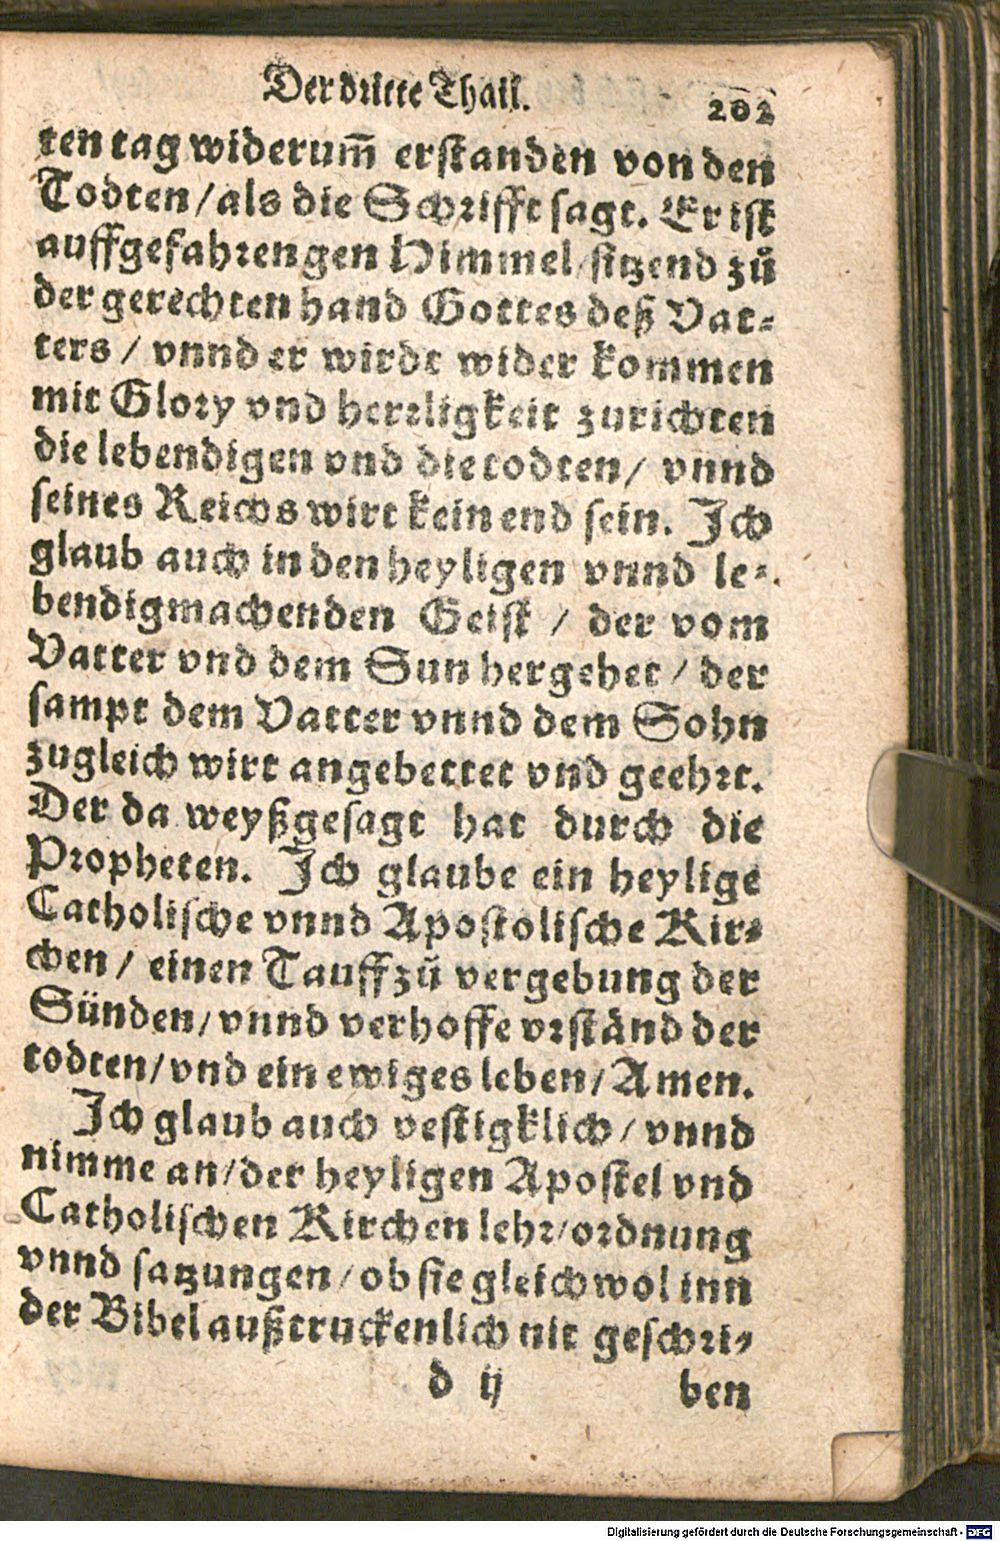 Der dritte Thail.
202
ten tag widerum̃ erstanden von den
Todten / als die Schrifft sagt. Er ist
auffgefahren gen Himmel / sitzend zů
der gerechten hand Gottes deß Vat-
ters / vnnd er wirdt wider kommen
mit Glory vnd herrligkeit zurichten
die lebendigen vnd die todten / vnnd
seines Reichs wirt kein end sein. Ich
glaub auch in den heyligen vnnd le-
bendigmachenden Geist / der vom
Vatter vnd dem Sun hergehet / der
sampt dem Vatter vnnd dem Sohn
zugleich wirt angebettet vnd geehrt.
Der da weyßgesagt hat durch die
Propheten. Ich glaube ein heylige
Catholische vnnd Apostolische Kir-
chen / einen Tauff zů vergebung der
Sünden / vnnd verhoffe vrständ der
todten / vnd ein ewiges leben / Amen.
Ich glaub auch vestigklich / vnnd
nimme an / der heyligen Apostel vnd
Catholischen Kirchen lehr / ordnung
vnnd satzungen / ob sie gleichwol inn
der Bibel außtruckenlich nit geschri-
d ij
ben
Digitalisierung gefördert durch die Deutsche Forschungsgemeinschaft - DFG